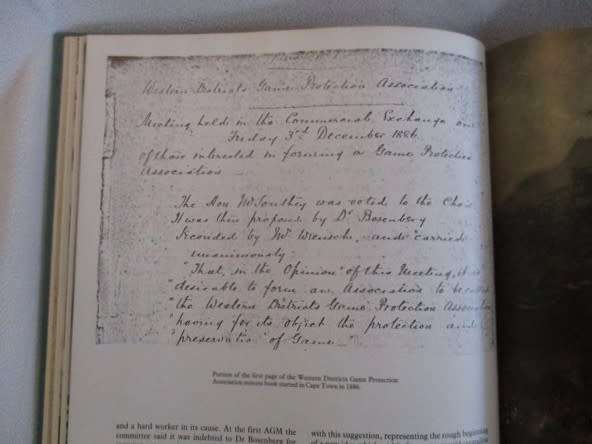 Western Districts Game Protection Association
Meeting held in the Commercial Exchange on
Friday 3rd December 1886
of those interested in forming a Game Protection
Association
The Hon Mr Southey was voted to the Chair
It was then proposed by Dr Rosenberg
Seconded by Mr Wrensch, and carried
unanimously
"That, in the Opinion" of this Meeting, it is
"desirable to form an Association to be called
"the Western Districts Game Protection Association
"having for its object the protection and
"preservation" of Game."
Portion of the first page of the Western Districts Game Protection
Association minute book started in Cape Town in 1886.
and a hard worker in its cause. At the first AGM the
committee said it was indebted to Dr Rosenberg for
with this suggestion, representing the rough beginning